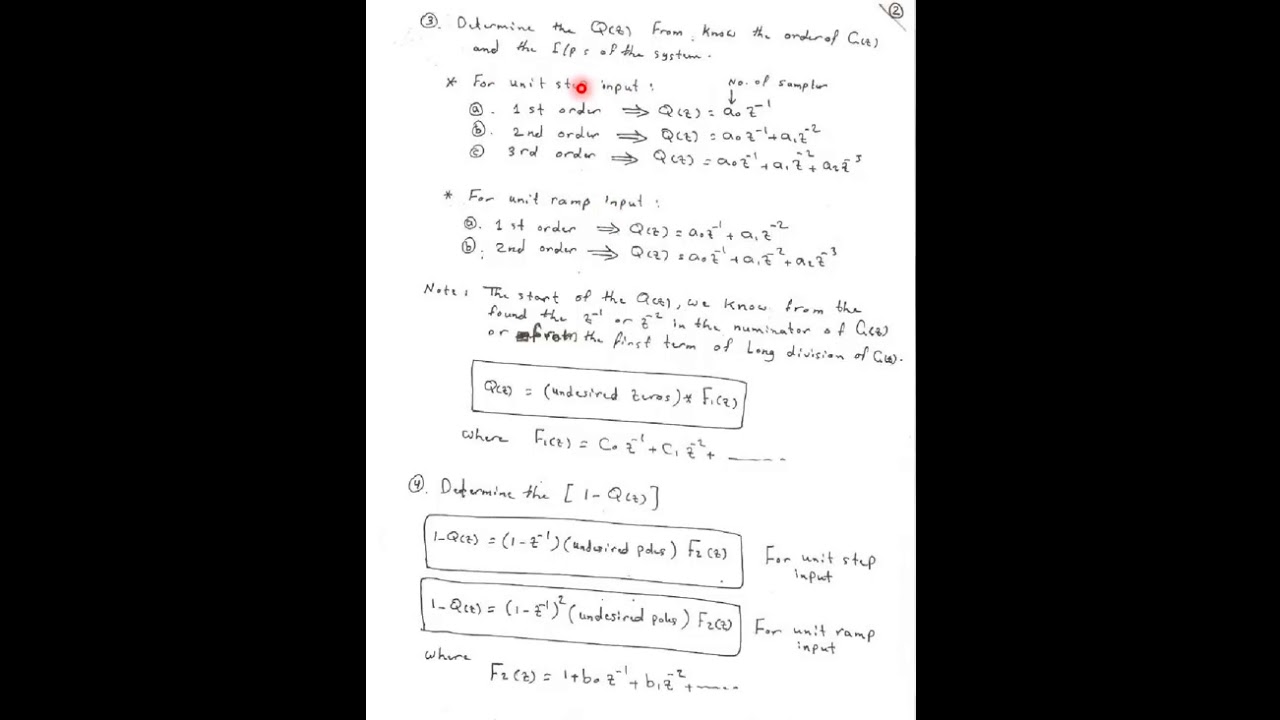 ②
③. Determine the Q(z) From, know the order of G(z)
and the I/p s of the system.
* For unit step input :
No. of sampler
ⓐ. 1 st order ⟹ Q(z) = a₀ z⁻¹
ⓑ. 2nd order ⟹ Q(z) = a₀ z⁻¹ + a₁ z⁻²
ⓒ 3rd order ⟹ Q(z) = a₀ z⁻¹ + a₁ z⁻² + a₂ z⁻³
* For unit ramp input :
ⓐ. 1 st order ⟹ Q(z) = a₀ z⁻¹ + a₁ z⁻²
ⓑ. 2nd order ⟹ Q(z) = a₀ z⁻¹ + a₁ z⁻² + a₂ z⁻³
Note : The start of the Q(z), we know from the
found the z⁻¹ or z⁻² in the numinator of G(z)
or from the first term of Long division of G(z).
Q(z) = (undesired zeros) * F₁(z)
where F₁(z) = C₀ z⁻¹ + C₁ z⁻² + -----
④. Determine the [ 1 - Q(z) ]
1-Q(z) = (1-z⁻¹) (undesired poles) F₂(z)
For unit step
input
1-Q(z) = (1-z⁻¹)² (undesired poles) F₂(z)
For unit ramp
input
where
F₂(z) = 1 + b₀ z⁻¹ + b₁ z⁻² + -----